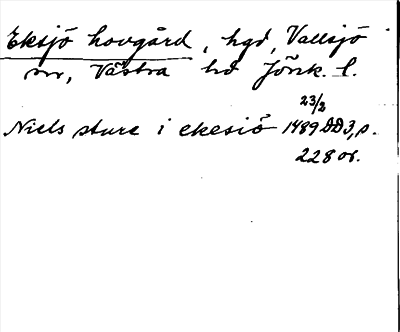 Eksjö hovgård, hgd, Vallsjö
sn, Västra hd Jönk. l.
23/2
Niels sture i ekesiö 1489 DD3, s.
228 or.